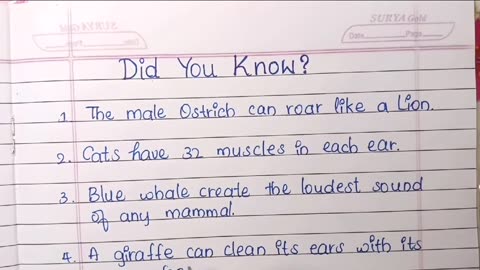 SURYA Gold
Date Page
Did You Know?
1. The male Ostrich can roar like a Lion.
2. Cats have 32 muscles in each ear.
3. Blue whale create the loudest sound
of any mammal.
4. A giraffe can clean its ears with its